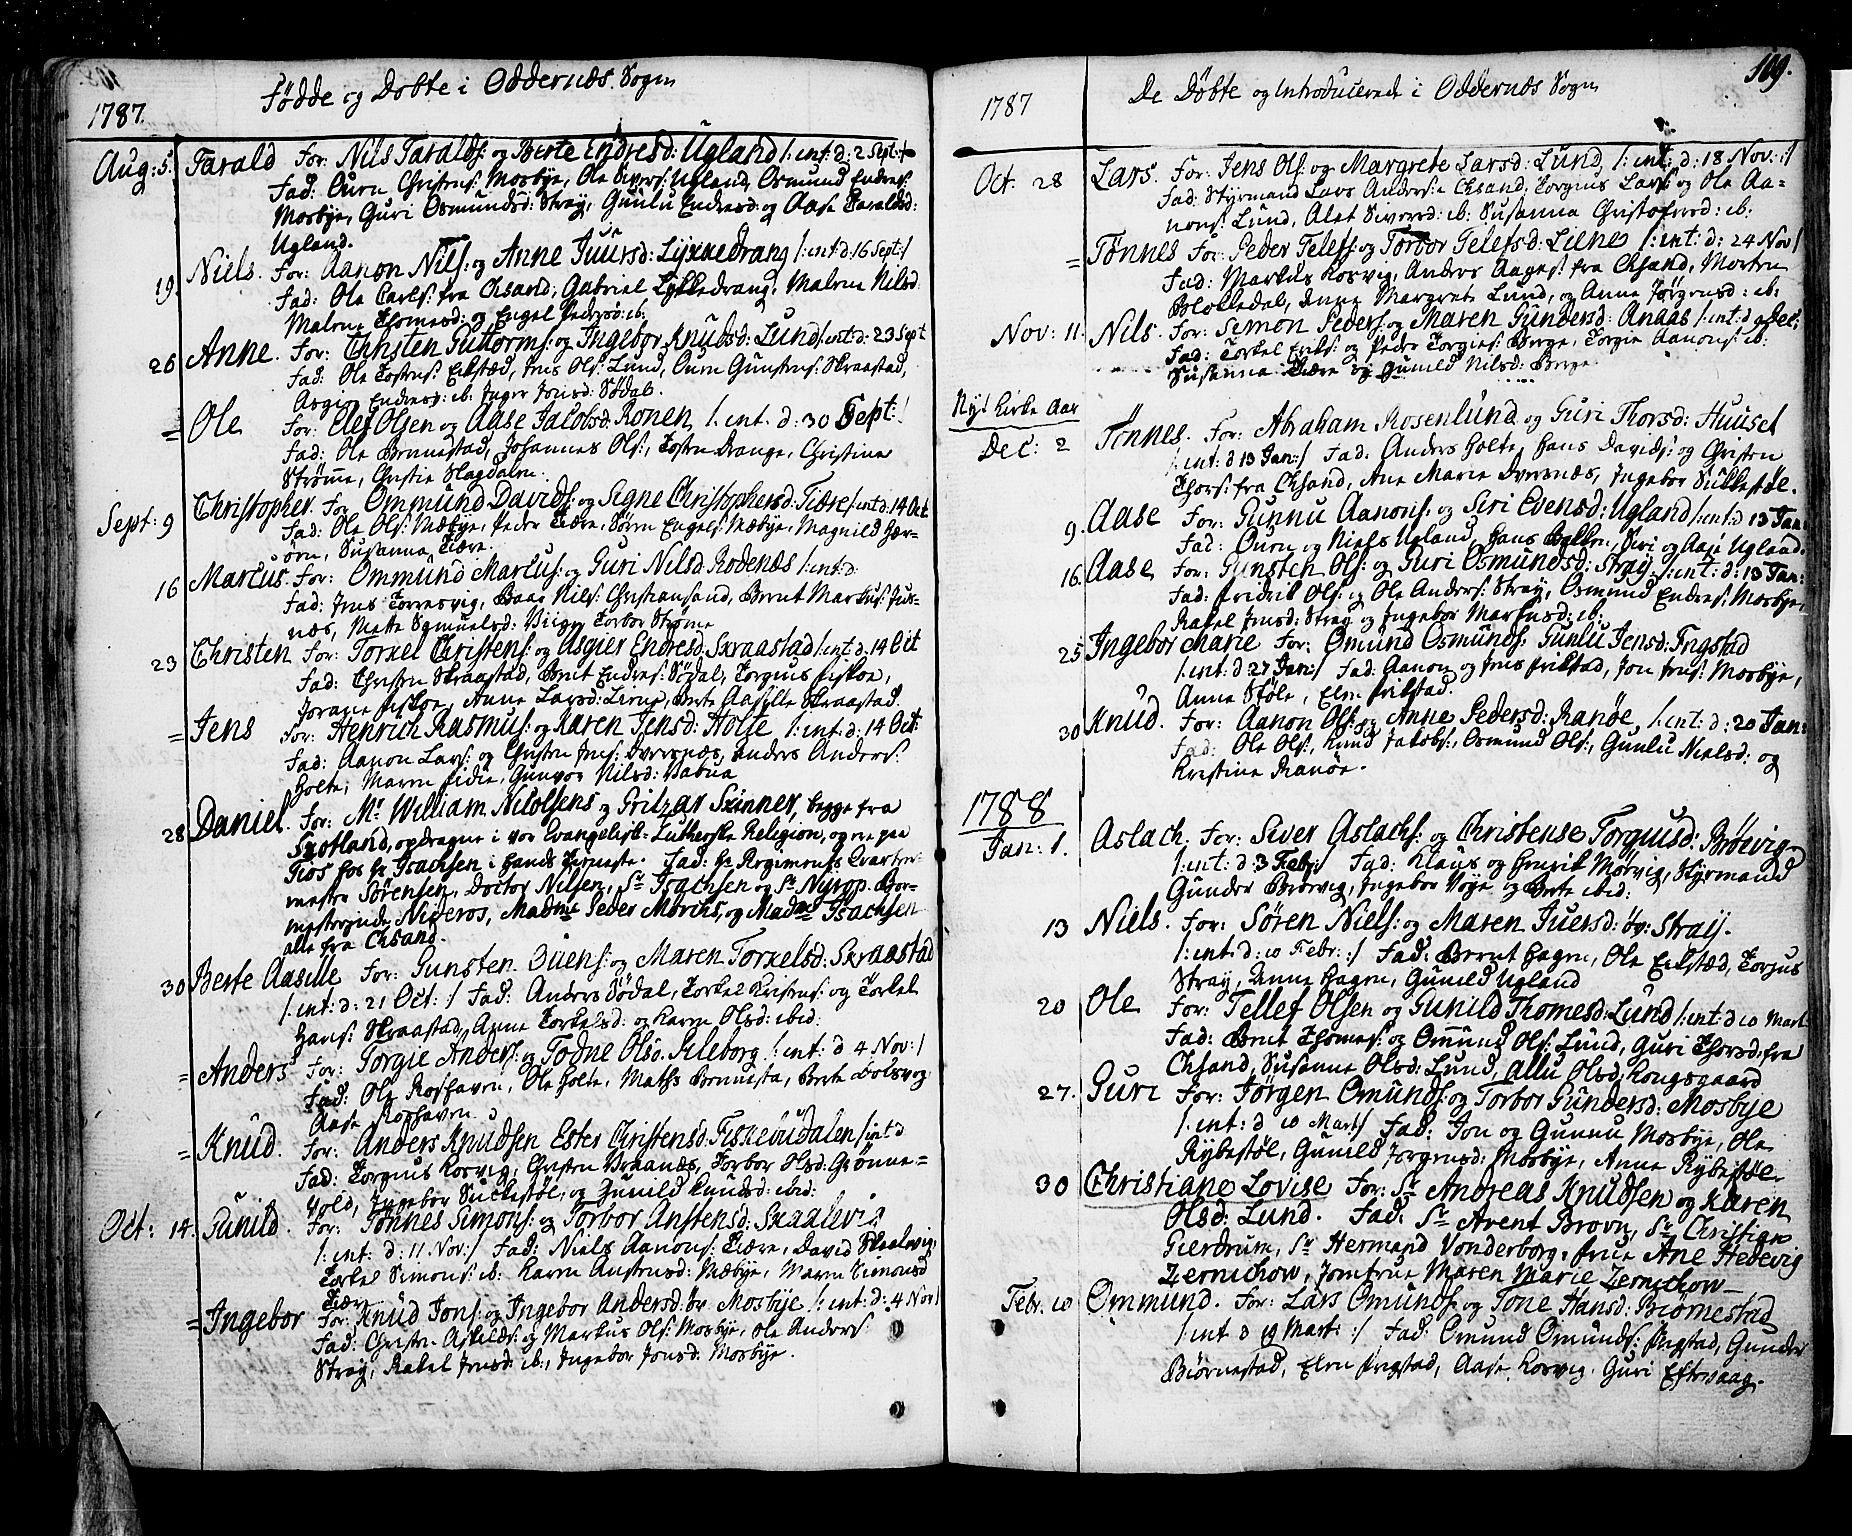 1787. Fødde og Døbte i Oddernæs Sogn
Aug: 5. Tarald For: Nils Taralds: og Berte Endresd: Ugland /: int: d: 2 Sept: /
Fad: Ouen Christens: Mosbye, Ole Sivers: Ugland, Osmund Endres:
Mosbye, Guri Osmundsd: Stray, Gunlu Endresd: og Aase Taraldsd:
Ugland.
19. Niels. For: Aanon Nils: og Anne Juursd: Lykkedrang /: int: d: 16 Sept: /
Fad: Ole Carls: fra Chsand, Gabriel Lykkedrang, Malene Nilsd:
Malene Thomesd: og Engel Pedersd: ib:
26 Anne. For: Christen Guttorms: og Ingebor Knudsd: Lund /: int: d: 23 Sept
Fad: Ole Tostens: Eikstæd, Jens Ols: Lund, Ouen Gunstens: Skraastad,
Asgier Endresd: ib: Inger Jensd: Sødal.
= Ole For: Elef Olsen og Aase Jacobsd: Ronen /: int. d: 30 Sept: /
Fad: Ole Bennestad, Johannes Ols:, Tosten Drange, Christine
Strømme, Christie Hagdalen.
Sept: 9 Christopher. For: Ommund Davids: og Signe Christophersd: Tiære /: int: d: 14 Oct
Fad: Ole Ols: Mæbye, Peder Tiære, Søren Engels: Mæbye, Magnild
Susanna Tiære.
16 Marcus. For: Ommund Marcus: og Guri Nilsd: Rodenæs /: int: d:
Fad: Jens Torresvig, Baar Nils: Christiansand, Bernt Markus: Jus-
næs, Mette Samuelsd: Torbor Strømme
23 Christen For: Torkel Christens: og Asgier Endresd: Skraastad /: int: d: 14 Oct
Fad: Christen Skraastad, Bernt Endres: Sødal, Torgius Fiskoe,
Jorane Fiskoe, Anne Larsd: Berte Aasylle Skraastad.
= Jens For: Henrich Rasmus: og Karen Jensd: Holte /: int: d: 14 Oct:
Fad: Aanon Lars: og Christen Jens: Dversnæs, Anders Anders:
Holte, Maren Gunvor Nilsd:
28 Daniel. For: Mr William Nilolsens og Skinner, begge fra
Skotland, opdragne i vor Evangelisk-Lutherske Religion, og nu paa
hos Hr Isachsen i Hands Tieneste. Fad: Hr Regiments Qvarter-
mester Sørensen, Doctor Nilsen, Sr Isachsen og Sr Nyrop. Bor-
mesterinde Nideros, Madme Peder Moriks, og Madme Isachsen
alle fra Chsand.
30 Berte Aasille For: Gunsten Ouens: og Maren Torkelsd: Skraastad
/: int: d: 21 Oct: / Fad: Anders Sødal, Torkel Kristens: og Torkel
Hans: Skraastad, Anne Torkelsd: og Karen Olsd: ibid:
= Anders For: Torgie Anders: og Todne Olsd: /: int: d 4 Nov: /
Fad: Ole Roshaven, Ole Holte, Maths Bennesta, Berte Dolsvog
Aase Roshaven.
= Knud. For: Anders Knudsen Ester Christensd: Fiskeaudalen /: int d
Fad: Torgius Korsvig, Christen Braanæs, Torbor Olsd: Grønne=
vold, Ingebor Suckestøl, og Gunild Knudsd: ibid:
Oct: 14. Gunild. For: Tønnes Simons: og Torbor Anstensd: Skaalevig
/: int: d: 11 Nov: / Fad: Niels Aanons: Tiære, David Skaalevig,
Torkel Simons: ib: Karen Austensd: Mæbye, Maren Simonsd
Tiære.
= Ingebor For: Knud Jons: og Ingebor Andersd: øv: Mosbye /: int: d: 4 Nov: /
Fad: Christen Askilds: og Markus Ols: Mosbye, Ole Anders:
Stray, Rakel Jensd: ib:, Ingebor Jonsd: Mosbye.
109.
1787 De Døbte og Introducerede i Oddernæs Sogn
Oct. 28 Lars. For: Jens Ols: og Margrete Larsd: Lund /: int: d: 18 Nov: /
Fad: Styrmand Lars Anders: i Chsand, Torgius Lars: og Ole Aa=
nons: Lund, Alet Siversd: ib: Susanna Christofersd: ib:
= Tønnes For: Peder Telefs: og Torbor Telefsd: Liene /: int: d: 24 Nov /
Fad: Markus Korsvig, Anders Aages: fra Chsand, Morten
Blokkedal, Anne Margrete Lund, og Anne Jørgensd: ib:
Nov: 11. Nils. For: Simon Peders: og Maren Gundersd: Anaas /: int: d 9 Dec:
Fad: Torkel Eriks: og Peder Torgies: Berge, Torgie Aanons: ib:
Susanna Tiære og Gunild Nilsd: Berge
Nyt Kirke Aar
Dec: 2 Tønnes. For: Abraham Rosenlund og Guri Thorsd: Huuset
/: int: d 13 Jan: / Fad: Anders Holte, Hans Davids: og Christen
Thors: fra Chsand, Ane Marie Dversnæs, Ingebor Sukkestøl.
9. Aase For: Gunnu Aanons: og Siri Evensd: Ugland /: int: d 13 Jan:
Fad: Ouen og Niels Ugland, Hans Siri og Aase Ugland.
16. Aase For: Gunsten Ols: og Guri Osmundsd: Stray. /: int: d: 13 Jan:
Fad: Fredrik Ols: og Ole Anders: Stray, Osmund Endres: Mosbye,
Rakel Jensd: Stray og Ingebor Markusd: ib:
25 Ingebor Marie For: Omund Osmunds: Gunlu Jensd: Tngstad
/: int: d 27 Jan: / Fad: Aanon og Jens Frikstad, Jon Jens: Mosbye,
Anne Støle, Elen Frikstad.
30 Knud. For: Aanon Ols: og Anne Pedersd: Ranøe /: int: d: 20 Jan:
Fad: Ole Ols:, Knud Jakobs:, Osmund Ols:, Gunlu Nielsd: og
Kristine Ranøe.
1788
Jan: 1. Aslach. For: Siver Aslachs: og Christense Torguisd: Brøevig
/: int: d 3 Feb: / Fad: Klaus og Henrik Mørvig, Styrmand
Gunder Brøevig, Ingebor Voye og Berte ibid:
13 Niels. For: Søren Niels: og Maren Juersd: øv: Stray.
/: int: d: 10 Febr: / Fad: Bernt Hagen, Ole Eikstæd, Torjus
Stray, Anne Hagen, Gunild Ugland
20 Ole For: Tellef Olsen og Gunild Thomesd: Lund /: int: d 10 Mart
Fad: Bernt Thomes: og Ommund Ols: Lund, Guri Thorsd: fra
Chsand, Susanne Olsd: Lund, Allu Olsd: Kongsgaard
27. Guri For: Jørgen Omunds: og Torbor Gundersd: Mosbye
/: int: d 10 Mart / Fad: Jon og Gunnu Mosbye, Ole
Rybestøl, Gunild Jorgensd: Mosbye, Anne Rybestøl
30 Christiane Lovise For: Sr Andreas Knudsen og Karen
Olsd: Lund. Fad: Sr Avent Brovn, Sr Christian
Gierdrum, Sr Hermand Vonderborg, Frue Ane Hedevig
Zernichow, Jomfrue Maren Marie Zernichow
Febr. 10 Ommund. For: Lars Omunds: og Tone Hansd: Biørnestad
/: int d 19 Mart: / Fad: Omund Omunds: Gunder
Biørnestad, Elen Aase Korsvig, Guri Eftevaag.